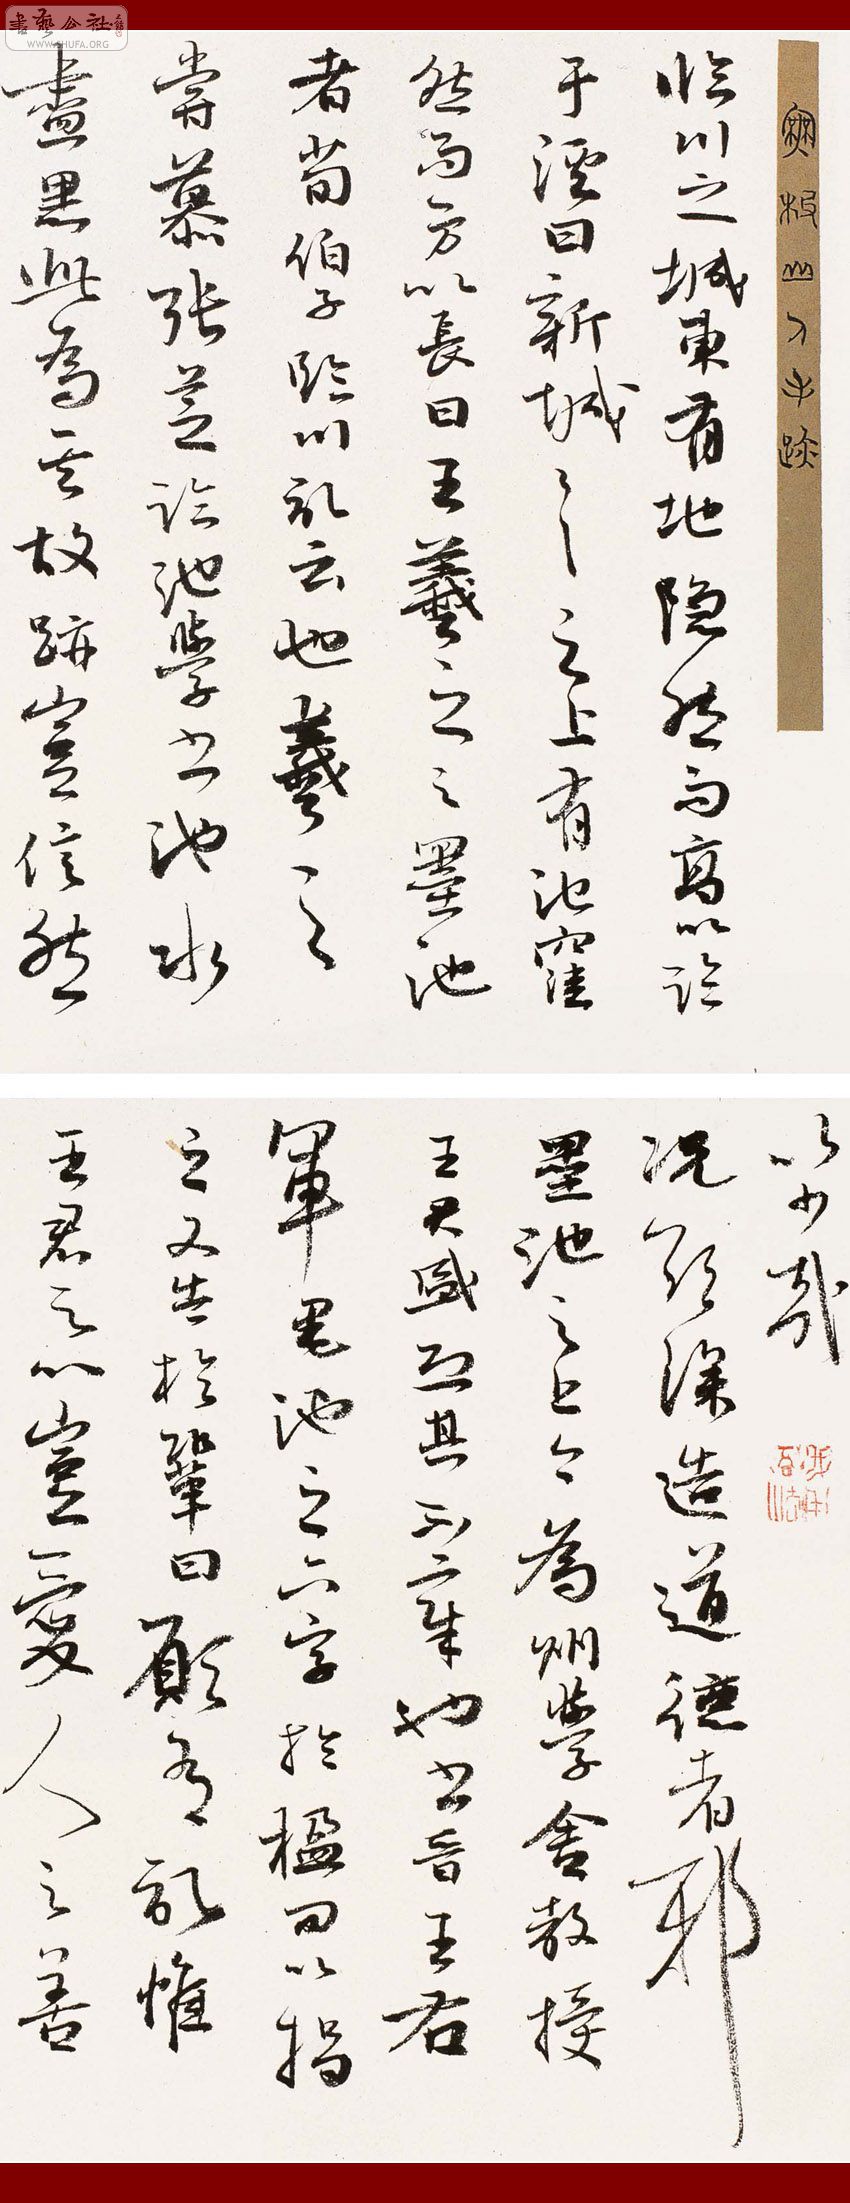 書藝公社
WWW.SHUFA.ORG
山人手跡
臨川之城東有地隐然而高以臨
于溪曰新城々々之上有池窪
然而方以長曰王羲之之墨池
者荀伯子臨川記云也羲之
嘗慕張芝臨池學書池水
盡黑此為其故跡豈信然
以少哉
况欲深造道德者邪
墨池之上今為州學舍教授
王君盛恐其不章也書晉王右
軍墨池之六字於楹間以揭
之又告於鞏曰願有記惟
王君之心豈愛人之善